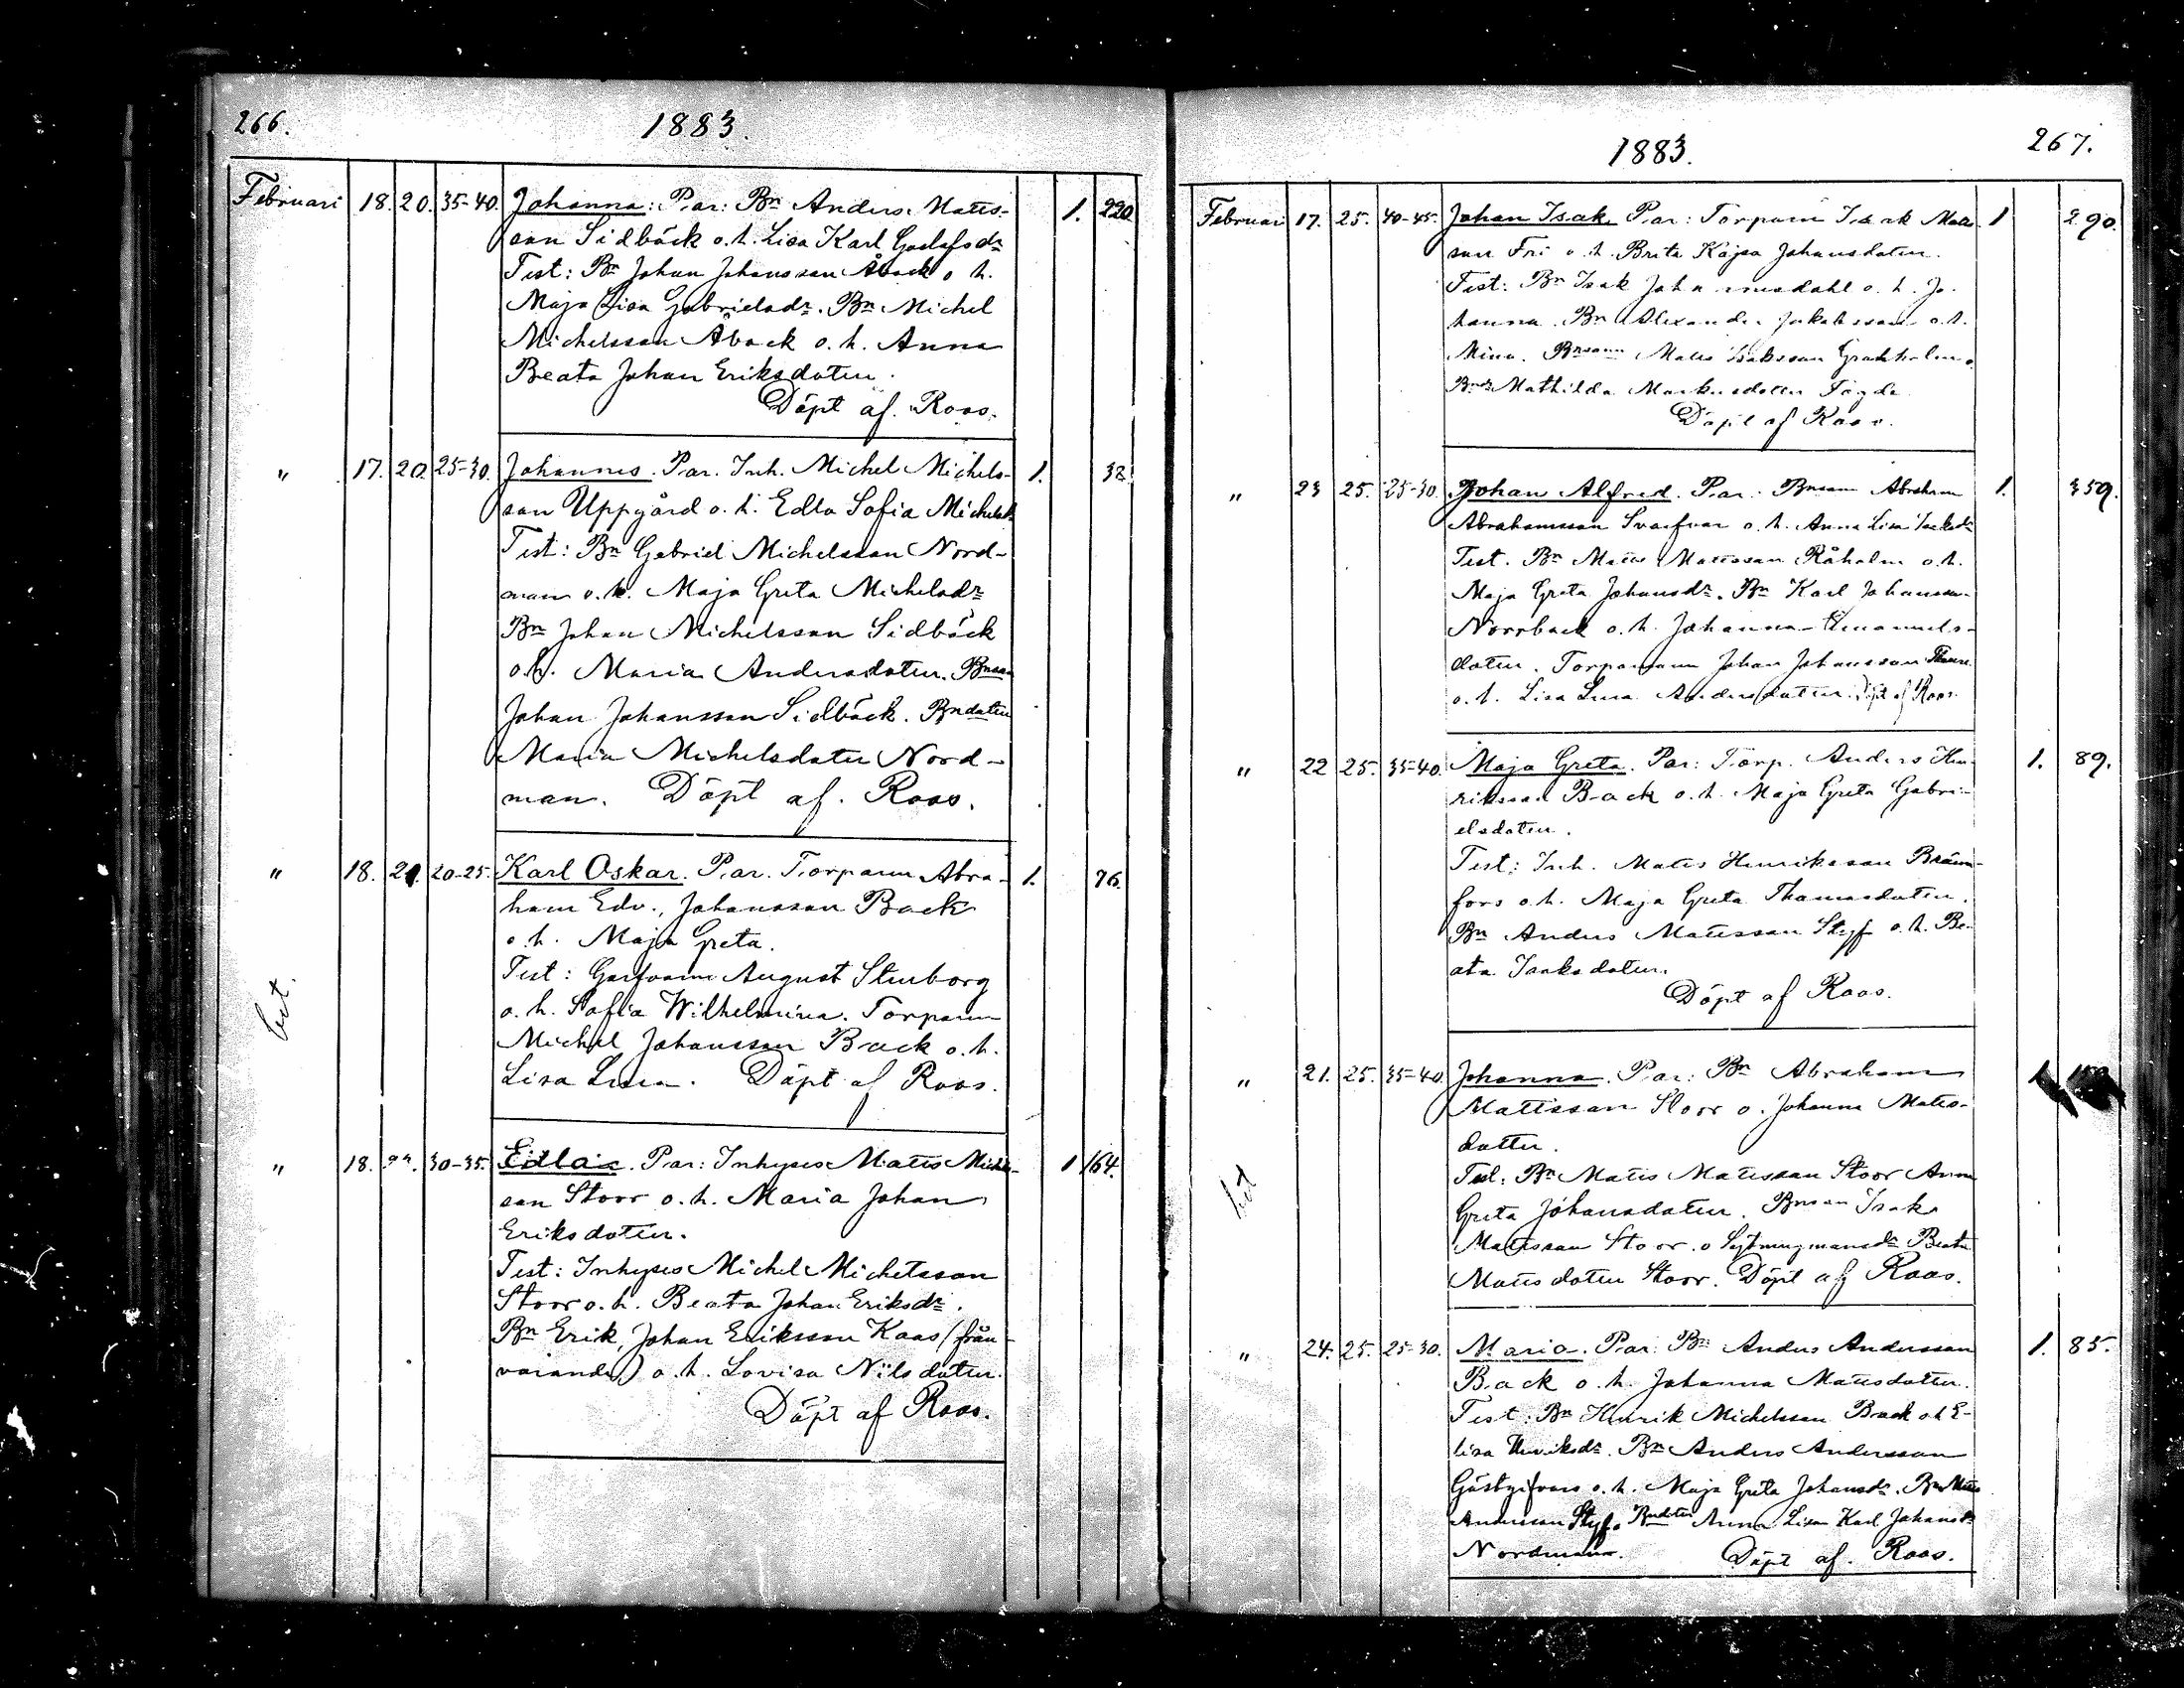 266.
1883.
Februari 18. 20. 35-40. Johanna: Par: Bn Anders Matts- 1. 220
son Sidbäck o. h. Lisa Karl Gustafsdr
Test: Bn Johan Johansson Åback o h.
Maja Lisa Gabrielsdr. Bn Michel
Michelsson Åback o. h. Anna
Beata Johan Eriksdotter.
Döpt af. Roos.
" 17. 20. 25-30. Johannes. Par. Inh. Michel Michels- 1. 32
son Uppgård o. h. Edla Sofia Michelsdr
Test: Bn Gabriel Michelsson Nord-
man o. h. Maja Greta Michelsdr
Bn Johan Michelsson Sidbäck
o. h. Maria Andersdotter. Bnson
Johan Johansson Sidbäck. Bndotter
Maria Michelsdotter Nord-
man. Döpt af. Roos.
" 18. 20-25. Karl Oskar. Par. Torparen Abra- 1. 76.
ham Edv., Johansson Back
o. h. Maja Greta.
Test: Garfvaren August Stenborg
o. h. Sofia Wilhelmina. Torparen
Michel Johansson Back o. h.
Lisa Lena. Döpt af Roos.
" 18. 30-35. Edla. Par: Inhyses Matts Michels- 1 164.
son Stoor o. h. Maria Johan
Eriksdotter.
Test: Inhyses Michel Michelsson
Stoor o. h. Beata Johan Eriksdr.
Bn Erik Johan Eriksson Kaas (från-
varande) o. h. Lovisa Nilsdotter.
Döpt af Roos.
1883.
267.
Februari 17. 25. 40-45. Johan Isak. Par: Torparen Isak Matts- 1 290.
son Fri o. h. Brita Kajsa Johansdotter.
Test: Bn Isak Johannesdahl o. h. Jo-
hanna. Bn Alexander Jakobsson o. h.
Mina. Bnson Matts Isaksson
Bndr Mathilda Markusdotter
Döpt af Roos.
" 23 25. 25-30. Johan Alfred. Par: Bnson Abraham 1. 359.
Abrahamsson Svarfvar o. h. Anna Lisa Isaksdr
Test. Bn Matts Mattsson Råholm o. h.
Maja Greta Johansdr. Bn Karl Johansson
Norrback o. h. Johanna Emanuels-
dotter. Torparen Johan Johansson
o. h. Lisa Lena Andersdotter. Döpt af Roos.
" 22 25. 35-40. Maja Greta. Par: Torp. Anders Hen- 1. 89.
riksson Back o. h. Maja Greta Gabri-
elsdotter.
Test: Inh. Matts Henriksson Bränn-
fors o. h. Maja Greta Thomasdotter.
Bn Anders Mattsson Styf o. h. Be-
ata Isaksdotter.
Döpt af Roos.
" 21. 25. 35-40. Johanna. Par: Bn Abraham 1
Mattsson Stoor o. Johanna Matts-
dotter.
Test: Bn Matts Mattsson Stoor Anna
Greta Johansdotter. Bnson Isak
Mattsson Stoor. o Sytningmansdr Beata
Mattsdotter Stoor. Döpt af Roos.
" 24. 25. 25-30. Maria. Par: Bn Anders Andersson 1. 85.
Back o. h. Johanna Mattsdotter.
Test: Bn Henrik Michelsson Back o h E-
lisa Henriksdr. Bn Anders Andersson
Gästgifvars o. h. Maja Greta Johansdr. Bn Matts
Andersson Styf. Bndotter Anna Lisa Karl Johansdr
Nordman. Döpt af. Roos.